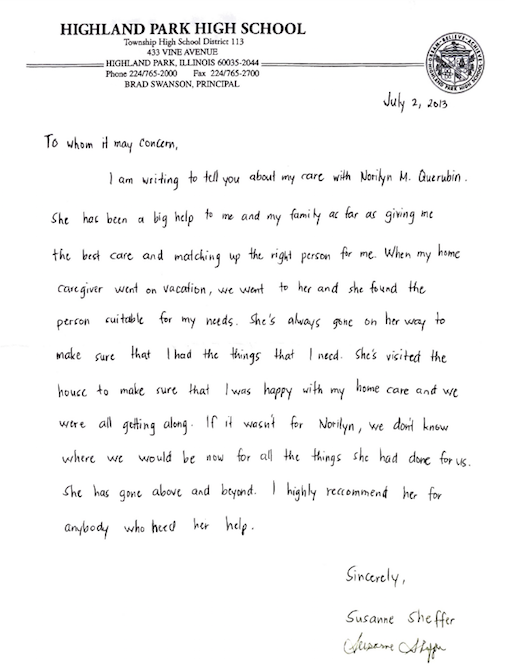 HIGHLAND PARK HIGH SCHOOL
Township High School District 113
433 VINE AVENUE
HIGHLAND PARK, ILLINOIS 60035-2044
Phone 224/765-2000 Fax 224/765-2700
BRAD SWANSON, PRINCIPAL
DREAM • BELIEVE • ACHIEVE
HIGHLAND PARK HIGH SCHOOL
July 2, 2013
To whom it may concern,
I am writing to tell you about my care with Norilyn M. Querubin.
She has been a big help to me and my family as far as giving me
the best care and matching up the right person for me. When my home
caregiver went on vacation, we went to her and she found the
person suitable for my needs. She's always gone on her way to
make sure that I had the things that I need. She's visited the
house to make sure that I was happy with my home care and we
were all getting along. If it wasn't for Norilyn, we don't know
where we would be now for all the things she had done for us.
She has gone above and beyond. I highly reccommend her for
anybody who need her help.
Sincerely,
Susanne Sheffer
Susanne Sheffer